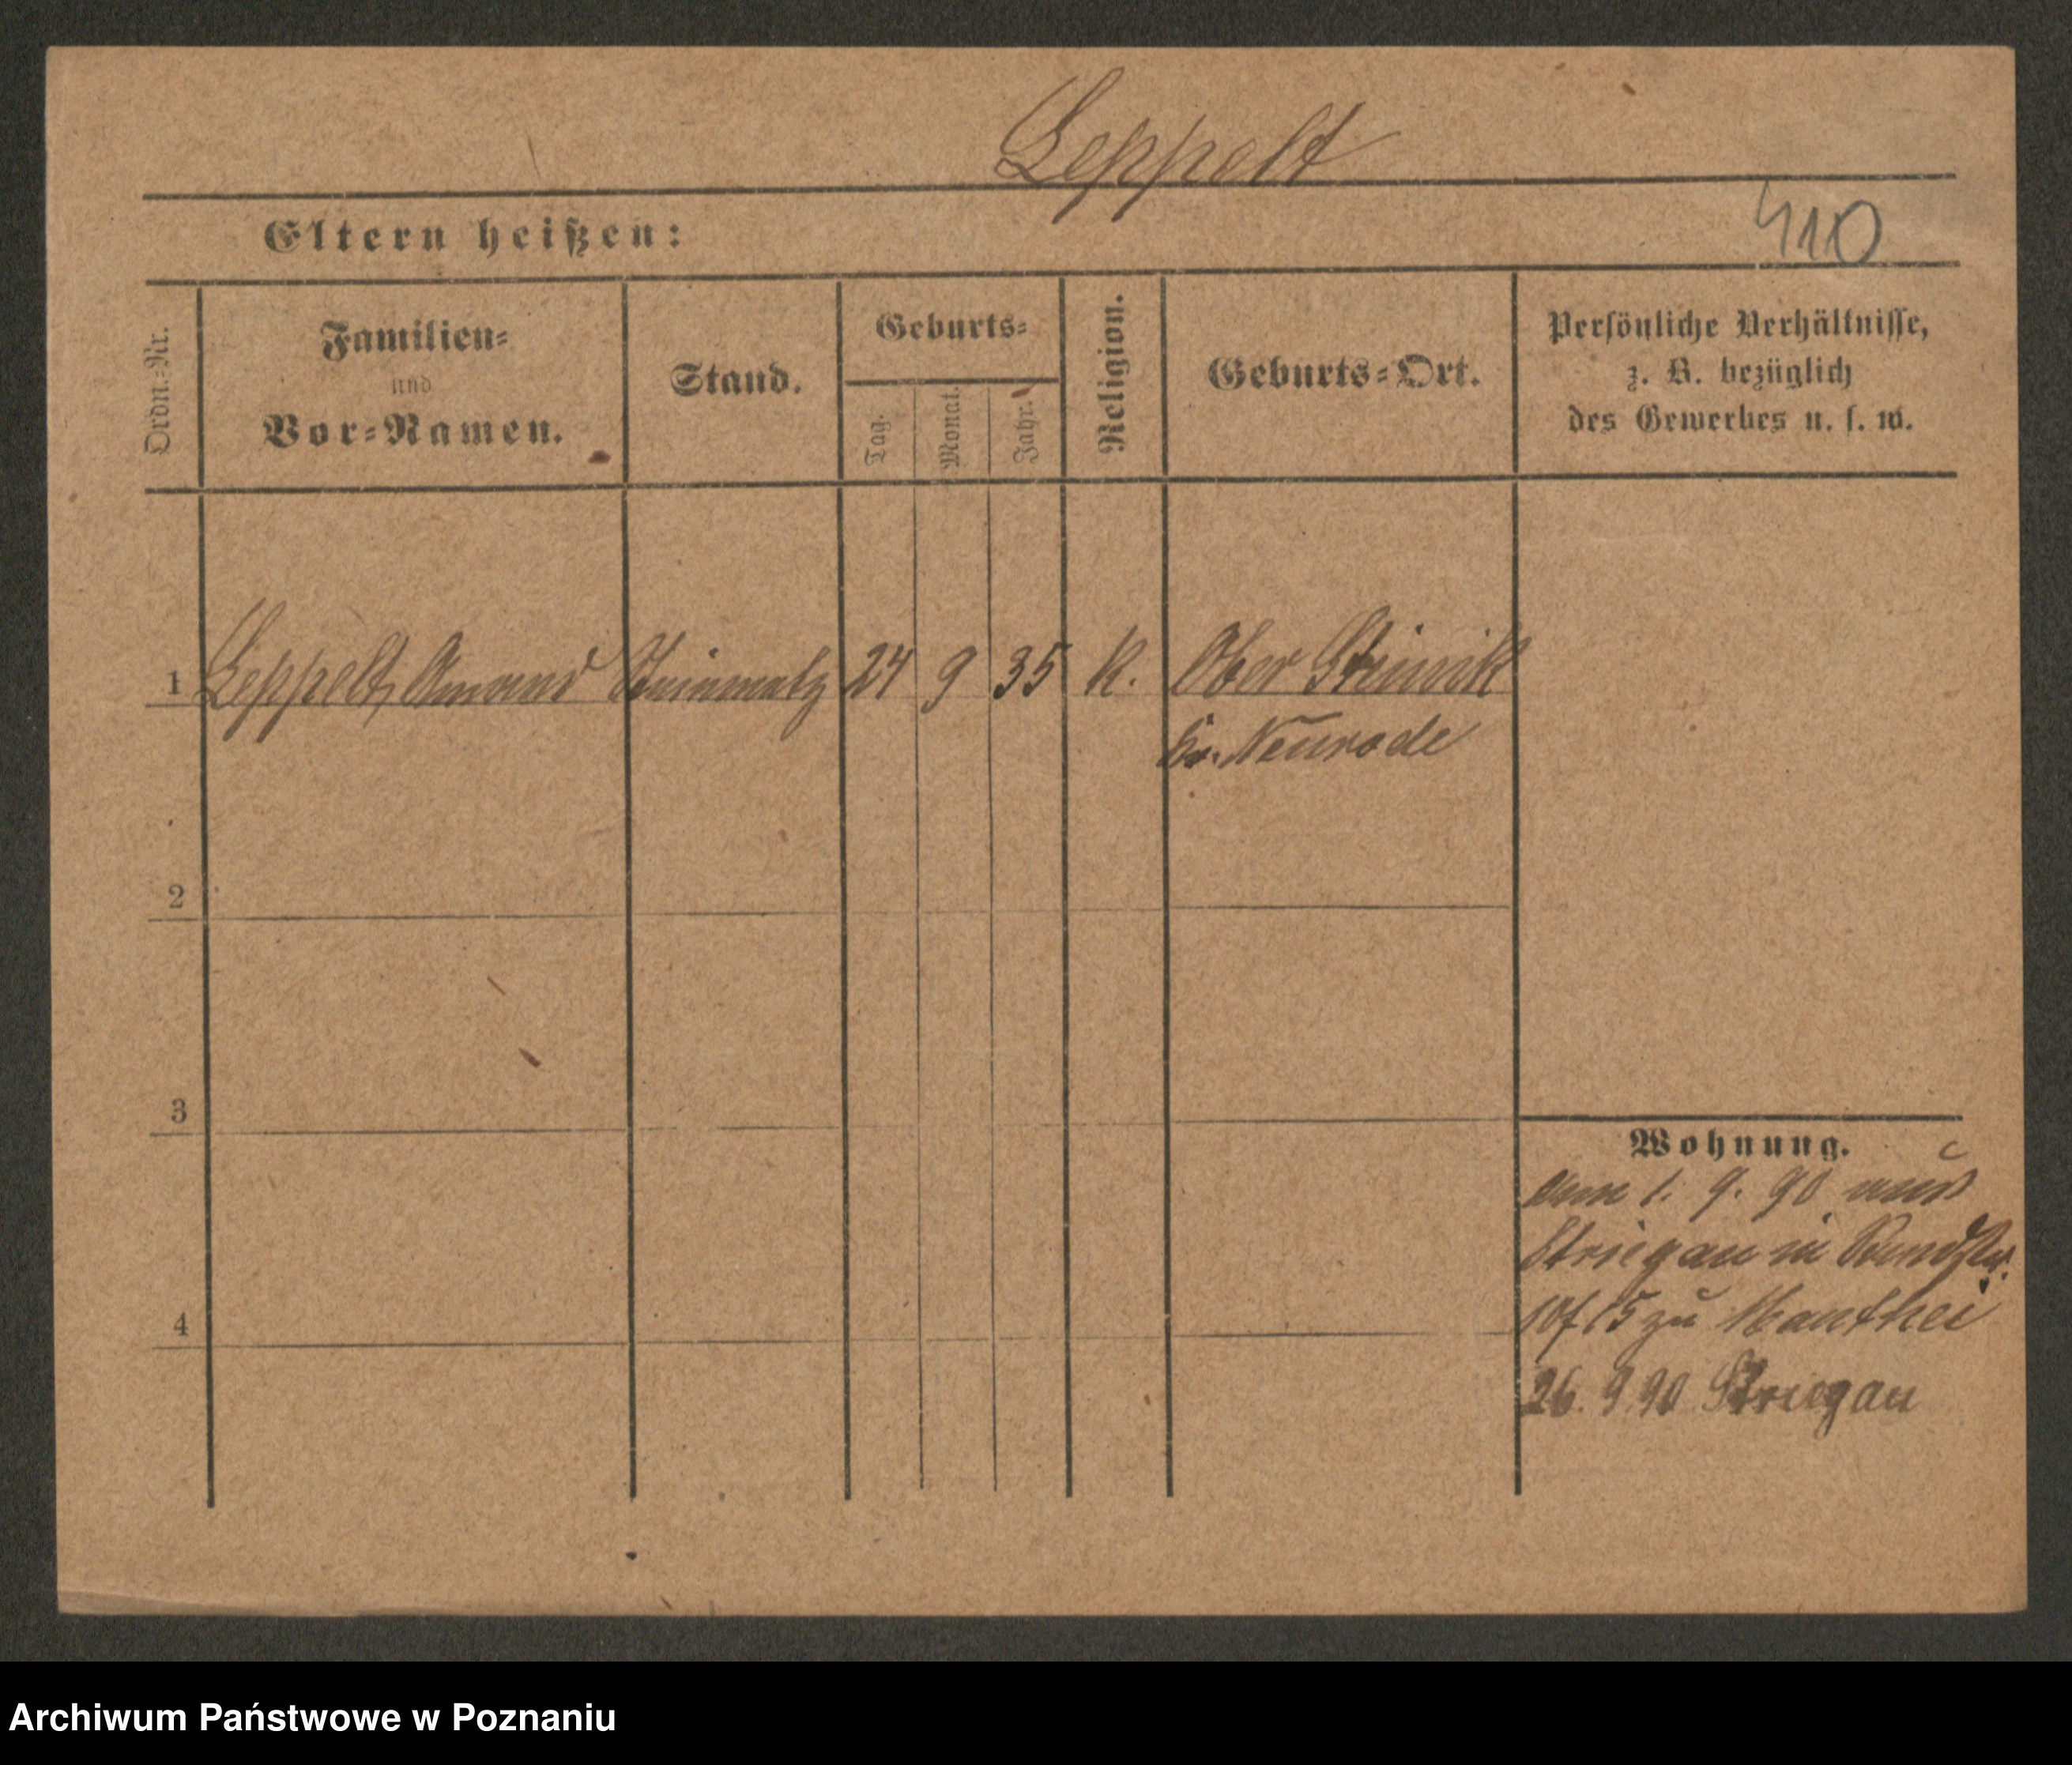 Leppelt
Eltern heißen:
410
Ordn.-Nr.
Familien-
und
Vor-Namen.
Stand.
Geburts-
Tag.
Monat.
Jahr.
Religion.
Geburts-Ort.
Persönliche Verhältnisse,
z. B. bezüglich
des Gewerbes u. s. w.
1 Leppelt, Amand Steinmetz 24 9 35 K. Ober Steinik
Kr. Neurode
2
3
Wohnung.
1. 9. 90 aus
Striegau in
15 zu Manthei
4
26. 9 90 Striegau
Archiwum Państwowe w Poznaniu